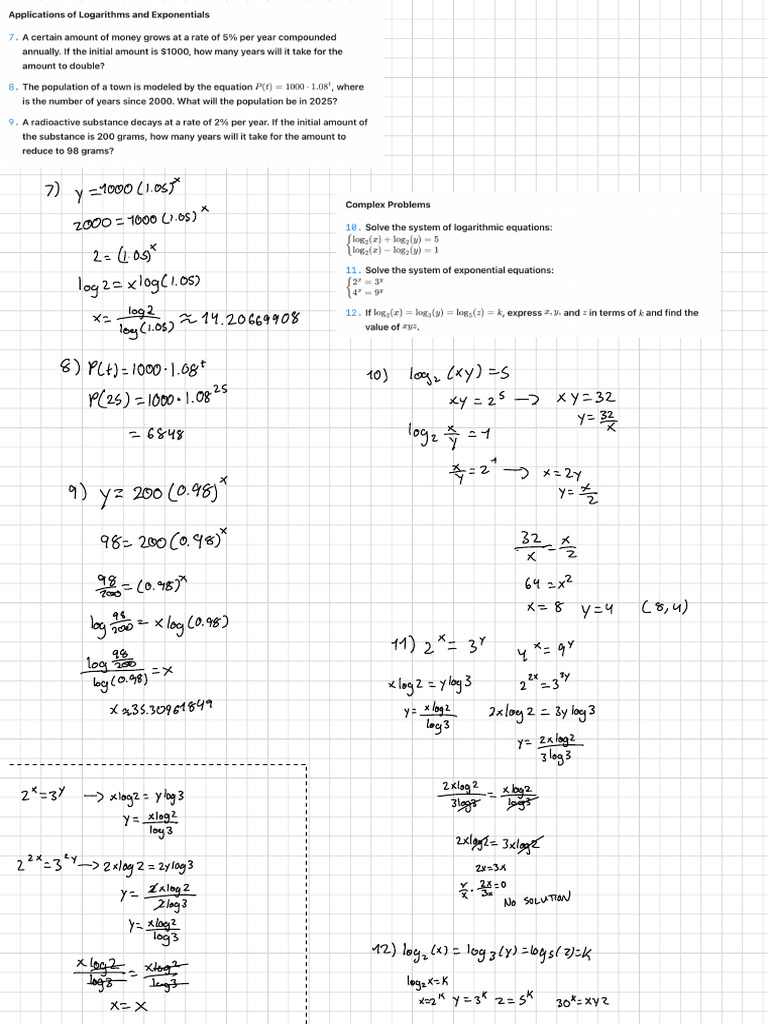 Applications of Logarithms and Exponentials
7. A certain amount of money grows at a rate of 5% per year compounded
annually. If the initial amount is $1000, how many years will it take for the
amount to double?
8. The population of a town is modeled by the equation P(t) = 1000 · 1.08^t, where
is the number of years since 2000. What will the population be in 2025?
9. A radioactive substance decays at a rate of 2% per year. If the initial amount of
the substance is 200 grams, how many years will it take for the amount to
reduce to 98 grams?
7) y = 1000 (1.05)^x
2000 = 1000 (1.05)^x
2 = (1.05)^x
log 2 = x log (1.05)
x = log 2 / log (1.05) ≈ 14.20669908
8) P(t) = 1000 · 1.08^t
P(25) = 1000 · 1.08^25
= 6848
9) y = 200 (0.98)^x
98 = 200 (0.98)^x
98/200 = (0.98)^x
log 98/200 = x log (0.98)
log 98/200 / log (0.98) = x
x ≈ 35.30961849
2^x = 3^y → x log 2 = y log 3
y = x log 2 / log 3
2^2x = 3^2y → 2x log 2 = 2y log 3
y = 2x log 2 / 2 log 3
y = x log 2 / log 3
x log 2 / log 3 = x log 2 / log 3
x = x
Complex Problems
10. Solve the system of logarithmic equations:
{ log₂(x) + log₂(y) = 5
log₂(x) − log₂(y) = 1
11. Solve the system of exponential equations:
{ 2^x = 3^y
4^x = 9^y
12. If log₂(x) = log₃(y) = log₅(z) = k, express x, y, and z in terms of k and find the
value of xyz.
10) log₂ (xy) = 5
xy = 2^5 → xy = 32
y = 32/x
log₂ x/y = 1
x/y = 2^1 → x = 2y
y = x/2
32/x = x/2
64 = x²
x = 8 y = 4 (8,4)
11) 2^x = 3^y 4^x = 9^y
x log 2 = y log 3 2^2x = 3^3y
y = x log 2 / log 3 2x log 2 = 3y log 3
y = 2x log 2 / 3 log 3
2x log 2 / 3 log 3 = x log 2 / log 3
2x log 2 = 3x log 2
2x = 3x
2x/3x = 0
NO SOLUTION
12) log₂ (x) = log₃ (y) = log₅ (z) = k
log₂ x = k
x = 2^k y = 3^k z = 5^k 30^k = xyz